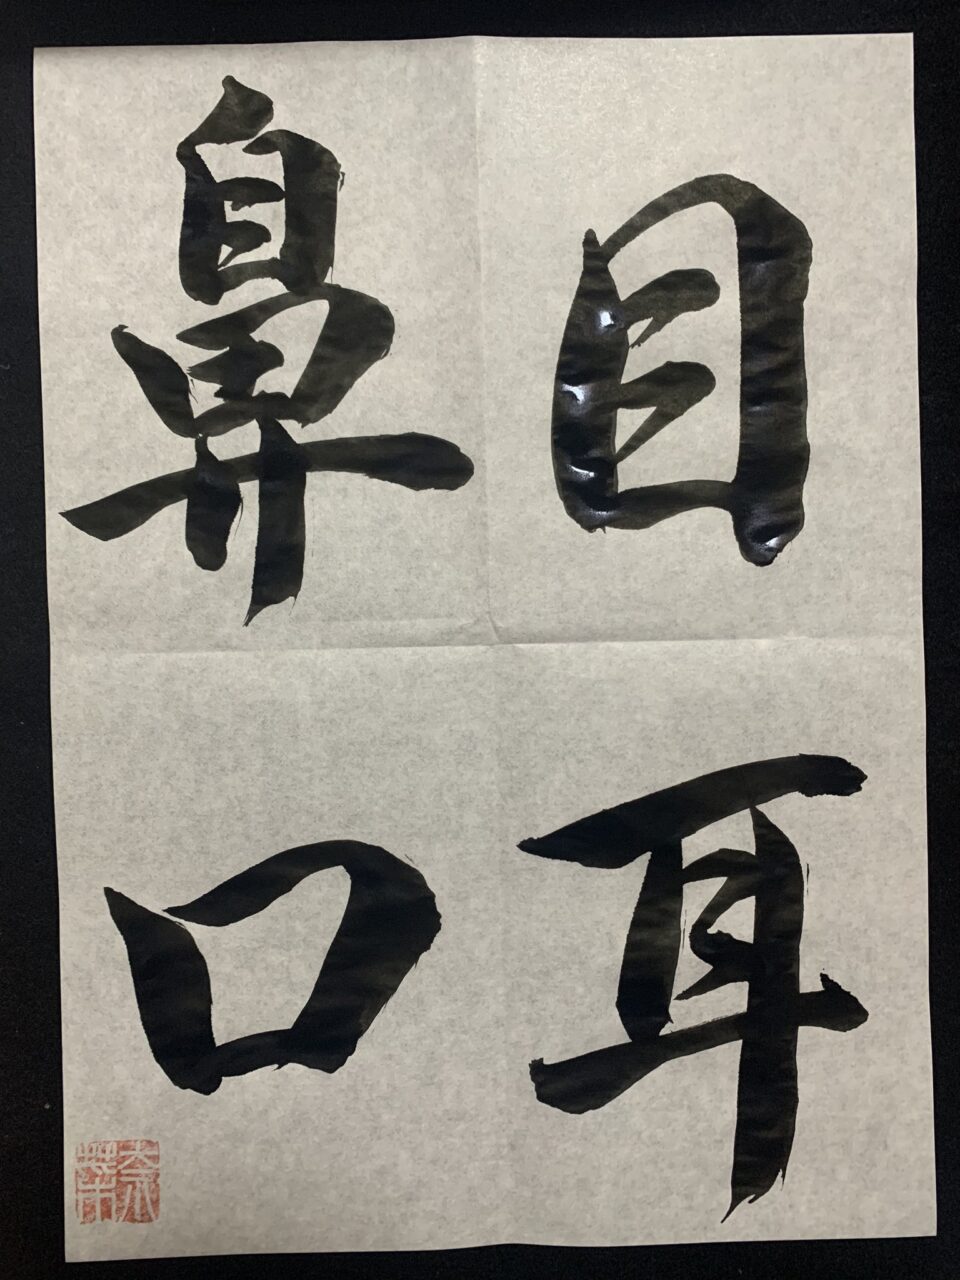 目耳
鼻口